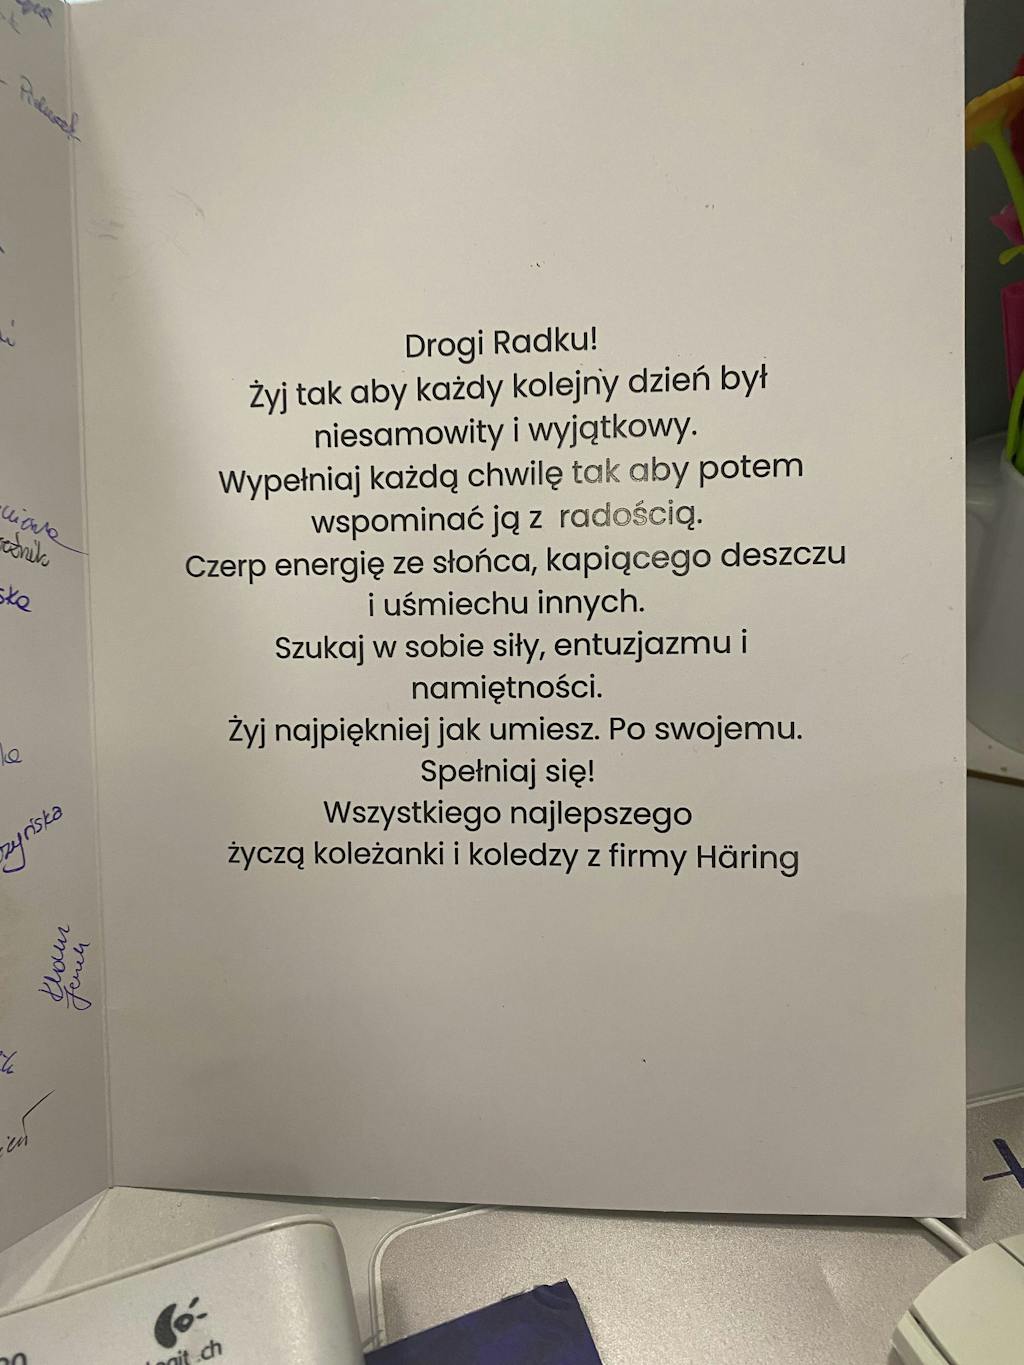 Drogi Radku!
Żyj tak aby każdy kolejny dzień był
niesamowity i wyjątkowy.
Wypełniaj każdą chwilę tak aby potem
wspominać ją z radością.
Czerp energię ze słońca, kapiącego deszczu
i uśmiechu innych.
Szukaj w sobie siły, entuzjazmu i
namiętności.
Żyj najpiękniej jak umiesz. Po swojemu.
Spełniaj się!
Wszystkiego najlepszego
życzą koleżanki i koledzy z firmy Häring